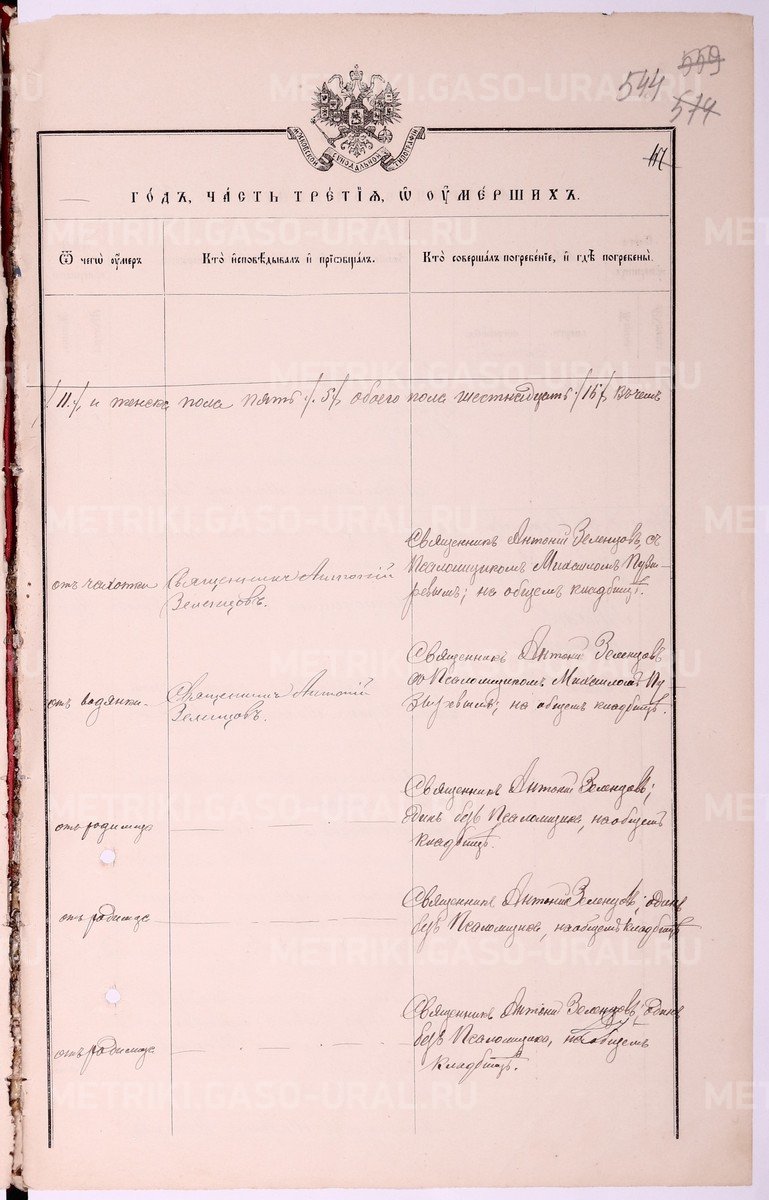 559
544
574
МОСКОВСКОЙ СѴНОДАЛЬНОЙ ТИПОГРАФІИ
ГО́ДЪ, ЧА́СТЬ ТРЕ́ТІЯ, Ѿ ОУ҆МЕ́РШИХЪ.
Ѿ чегѡ̀ оу҆́меръ
Кто̀ и҆сповѣ́дывалъ и҆ прїѡбща́лъ.
Кто̀ соверша́лъ погребе́нїе, и҆ гдѣ̀ погребены̀.
/11./, и женска пола пять /.5/ обоего пола шестнадцать /16/ въ чемъ
отъ чахотки
Священникъ Антоній
Зеленцовъ.
Священникъ Антоній Зеленцовъ, съ
Псаломщикомъ Михаиломъ Пузы-
ревымъ; на общемъ кладбищѣ.
отъ водянки
Священникъ Антоній
Зеленцовъ.
Священникъ Антоній Зеленцовъ
со Псаломщикомъ Михаиломъ Пу
зыревымъ; на общемъ кладбищѣ.
отъ родимца
Священникъ Антоній Зеленцовъ;
одинъ безъ Псаломщика, на общемъ
кладбищѣ.
отъ родимца
Священникъ Антоній Зеленцовъ; одинъ
безъ Псаломщика, на общемъ кладбищѣ
отъ родимца
Священникъ Антоній Зеленцовъ; одинъ
безъ Псаломщика, на общемъ
кладбищѣ.
METRIKI.GASO-URAL.RU